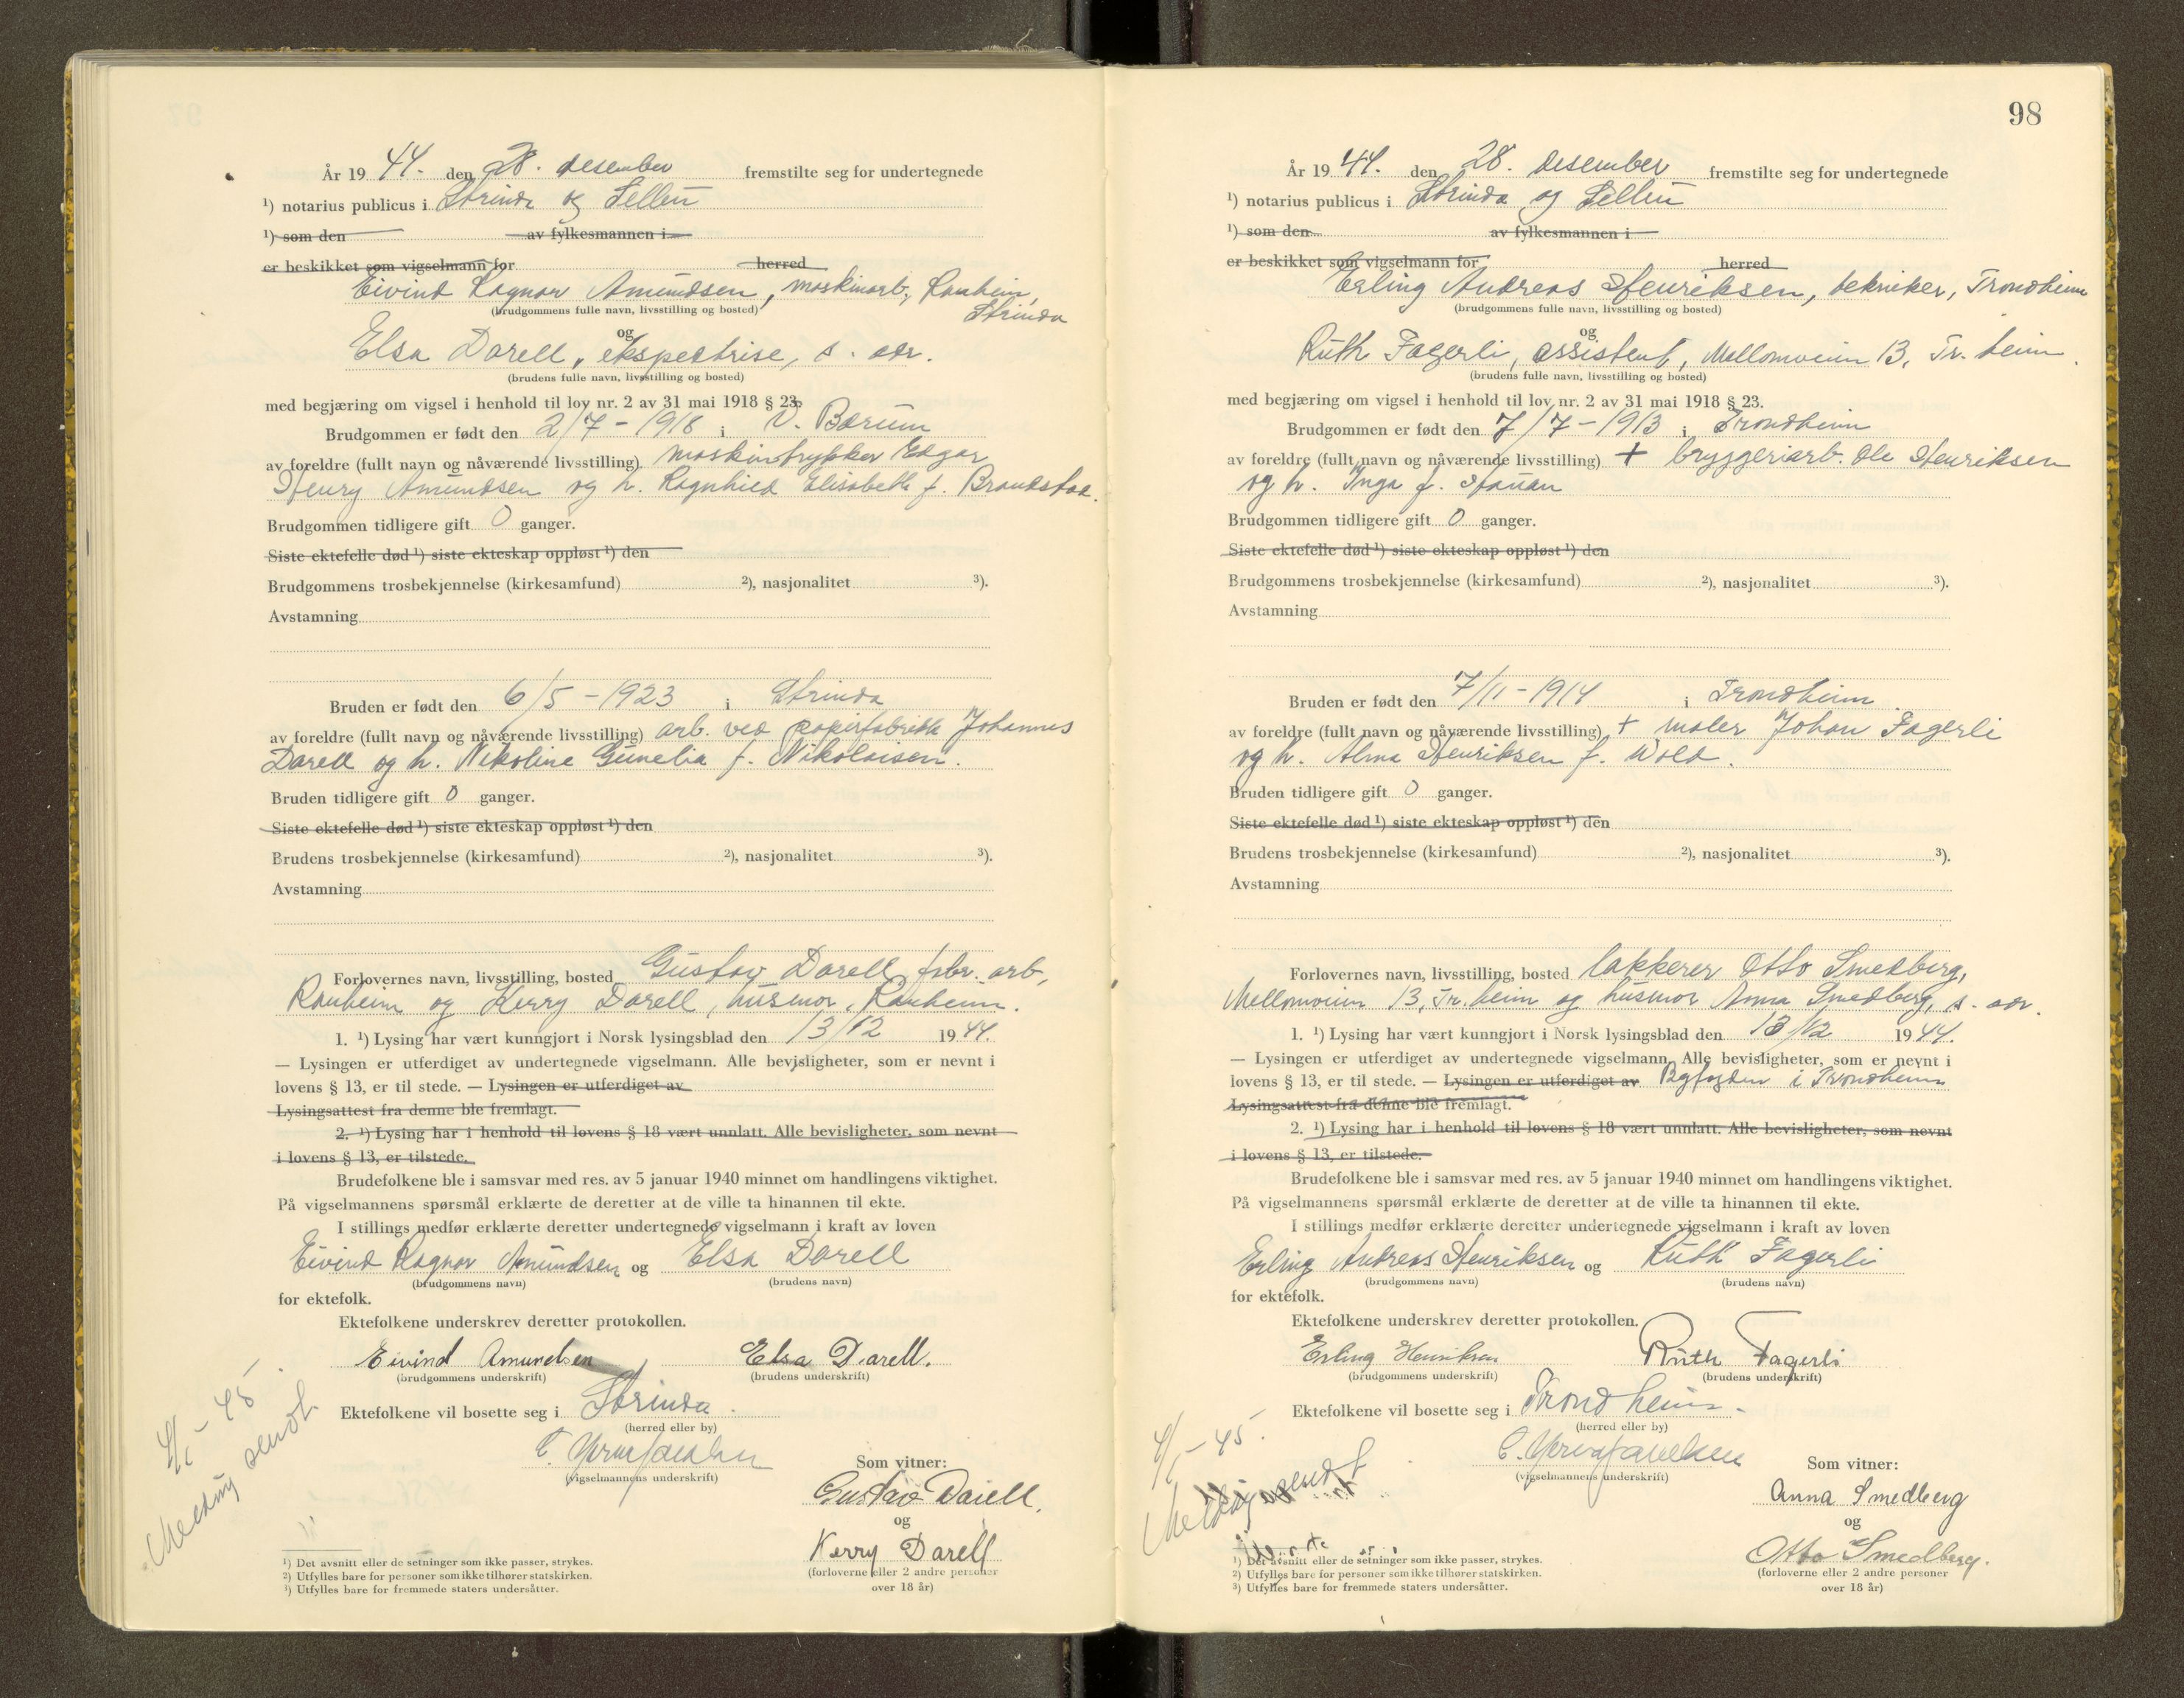 År 1944. den 28. desember fremstilte seg for undertegnede
¹) notarius publicus i Strinda og Selbu
¹) som den av fylkesmannen i
er beskikket som vigselmann for herred
Eivind Ragnar Amundsen, maskinarb., Ranheim,
Strinda
(brudgommens fulle navn, livsstilling og bosted)
og
Elsa Darell, ekspeditrise, s. adr.
(brudens fulle navn, livsstilling og bosted)
med begjæring om vigsel i henhold til lov nr. 2 av 31 mai 1918 § 23.
Brudgommen er født den 2/7 - 1918 i V. Bærum
av foreldre (fullt navn og nåværende livsstilling) maskintrykker Edgar
Henry Amundsen og h. Ragnhild Elisabeth f. Brandstad.
Brudgommen tidligere gift 0 ganger.
Siste ektefelle død ¹) siste ekteskap oppløst ¹) den
Brudgommens trosbekjennelse (kirkesamfund) ²), nasjonalitet ³).
Avstamning
Bruden er født den 6/5 - 1923 i Strinda
av foreldre (fullt navn og nåværende livsstilling) arb. ved papirfabrikk Johannes
Darell og h. Nikoline Gunelia f. Nikolaisen.
Bruden tidligere gift 0 ganger.
Siste ektefelle død ¹) siste ekteskap oppløst ¹) den
Brudens trosbekjennelse (kirkesamfund) ²), nasjonalitet ³).
Avstamning
Forlovernes navn, livsstilling, bosted Gustav Darell, fabr. arb,
Ranheim og Kerry Darell, husmor, Ranheim.
1. ¹) Lysing har vært kunngjort i Norsk lysingsblad den 13/12 1944.
— Lysingen er utferdiget av undertegnede vigselmann. Alle bevisligheter, som er nevnt i
lovens § 13, er til stede. — Lysingen er utferdiget av
Lysingsattest fra denne ble fremlagt.
2. ¹) Lysing har i henhold til lovens § 18 vært unnlatt. Alle bevisligheter, som nevnt
i lovens § 13, er tilstede.
Brudefolkene ble i samsvar med res. av 5 januar 1940 minnet om handlingens viktighet.
På vigselmannens spørsmål erklærte de deretter at de ville ta hinannen til ekte.
I stillings medfør erklærte deretter undertegnede vigselmann i kraft av loven
Eivind Ragnar Amundsen og Elsa Darell
(brudgommens navn) (brudens navn)
for ektefolk.
Ektefolkene underskrev deretter protokollen.
Eivind Amundsen Elsa Darell.
(brudgommens underskrift) (brudens underskrift)
Ektefolkene vil bosette seg i Strinda.
(herred eller by)
(vigselmannens underskrift)
Som vitner:
Gustav Darell.
og
Kerry Darell
(forloverne eller 2 andre personer
over 18 år)
4/1 - 45.
Melding sendt
¹) Det avsnitt eller de setninger som ikke passer, strykes.
²) Utfylles bare for personer som ikke tilhører statskirken.
³) Utfylles bare for fremmede staters undersåtter.
98
År 1944. den 28. desember fremstilte seg for undertegnede
¹) notarius publicus i Strinda og Selbu
¹) som den av fylkesmannen i
er beskikket som vigselmann for herred
Erling Andreas Henriksen, tekniker, Trondheim
(brudgommens fulle navn, livsstilling og bosted)
og
Ruth Fagerli, assistent, Mellomveien 13, Tr.heim.
(brudens fulle navn, livsstilling og bosted)
med begjæring om vigsel i henhold til lov nr. 2 av 31 mai 1918 § 23.
Brudgommen er født den 7/7 - 1913 i Trondheim
av foreldre (fullt navn og nåværende livsstilling) + bryggeriarb. Ole Henriksen
og h. Inga f. Hanan
Brudgommen tidligere gift 0 ganger.
Siste ektefelle død ¹) siste ekteskap oppløst ¹) den
Brudgommens trosbekjennelse (kirkesamfund) ²), nasjonalitet ³).
Avstamning
Bruden er født den 7/11 - 1914 i Trondheim
av foreldre (fullt navn og nåværende livsstilling) + maler Johan Fagerli
og h. Alma Henriksen f. Wold.
Bruden tidligere gift 0 ganger.
Siste ektefelle død ¹) siste ekteskap oppløst ¹) den
Brudens trosbekjennelse (kirkesamfund) ²), nasjonalitet ³).
Avstamning
Forlovernes navn, livsstilling, bosted lakkerer Otto Smedberg,
Mellomveien 13, Tr.heim og husmor Anna Smedberg, s. adr.
1. ¹) Lysing har vært kunngjort i Norsk lysingsblad den 13/12 1944.
— Lysingen er utferdiget av undertegnede vigselmann. Alle bevisligheter, som er nevnt i
lovens § 13, er til stede. — Lysingen er utferdiget av Byfogden i Trondheim
Lysingsattest fra denne ble fremlagt.
2. ¹) Lysing har i henhold til lovens § 18 vært unnlatt. Alle bevisligheter, som nevnt
i lovens § 13, er tilstede.
Brudefolkene ble i samsvar med res. av 5 januar 1940 minnet om handlingens viktighet.
På vigselmannens spørsmål erklærte de deretter at de ville ta hinannen til ekte.
I stillings medfør erklærte deretter undertegnede vigselmann i kraft av loven
Erling Andreas Henriksen og Ruth Fagerli
(brudgommens navn) (brudens navn)
for ektefolk.
Ektefolkene underskrev deretter protokollen.
Erling Henriksen Ruth Fagerli
(brudgommens underskrift) (brudens underskrift)
Ektefolkene vil bosette seg i Trondheim.
(herred eller by)
(vigselmannens underskrift)
Som vitner:
Anna Smedberg
og
Otto Smedberg.
(forloverne eller 2 andre personer
over 18 år)
4/1 - 45.
Melding sendt
¹) Det avsnitt eller de setninger som ikke passer, strykes.
²) Utfylles bare for personer som ikke tilhører statskirken.
³) Utfylles bare for fremmede staters undersåtter.